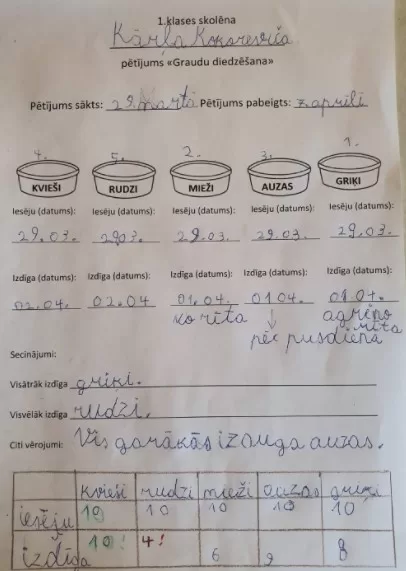 1.klases skolēna
Kārļa Kokareviča
pētījums «Graudu diedzēšana»
Pētījums sākts: 29.martā Pētījums pabeigts: 7.aprīlī
4. 5. 2. 3. 1.
KVIEŠI RUDZI MIEŽI AUZAS GRIĶI
Iesēju (datums): Iesēju (datums): Iesēju (datums): Iesēju (datums): Iesēju (datums):
29.03. 29.03. 29.03. 29.03. 29.03.
Izdīga (datums): Izdīga (datums): Izdīga (datums): Izdīga (datums): Izdīga (datums):
02.04. 02.04 01.04. 01.04. 01.04.
no rīta ↓ agrīno rīta
pēc pusdiena
Secinājumi:
Visātrāk izdīga griķi.
Visvēlāk izdīga rudzi.
Citi vērojumi: Vis garākās izauga auzas.
kvieši rudzi mieži auzas griķi
iesēju 10 10 10 10 10
izdīga 10! 4! 6 9 8